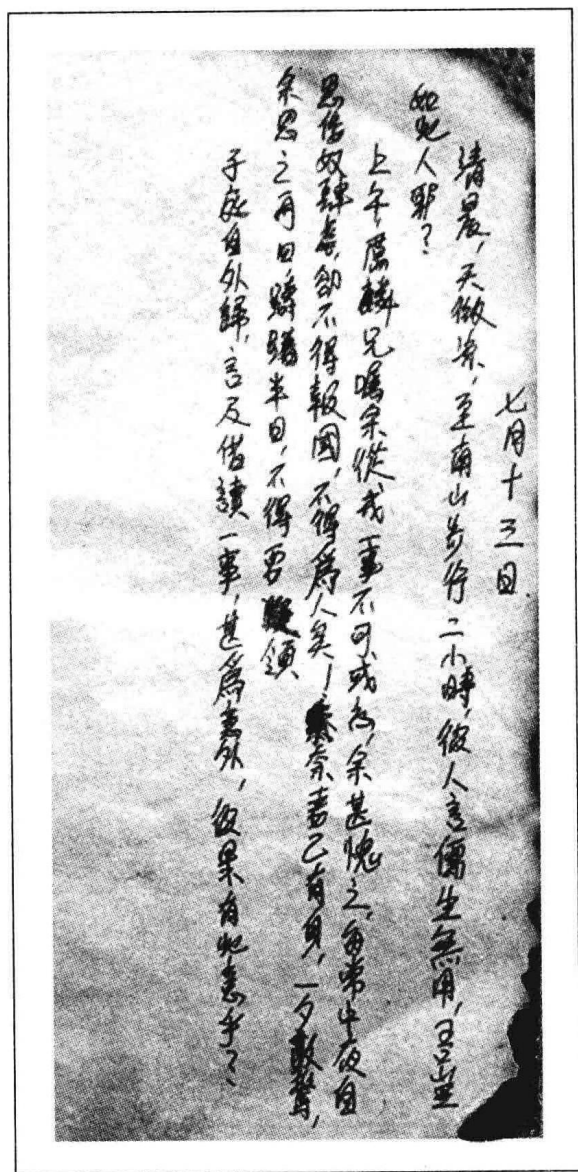 七月十三日
清晨,天微涼,至南山步行二小時,彼人言儒生無用,吾豈
如此人耶?
上午,厲麟兄囑余從戎一事不可或忽,余甚愧之,每常中夜自
思借奴肆虐,卻不得報國,不得為人矣!奈妻已有身,一夕數驚,
余思之再日,躊躇半日,不得要領
子庭自外歸,言及借讀一事,甚為意外,彼果有此意乎?